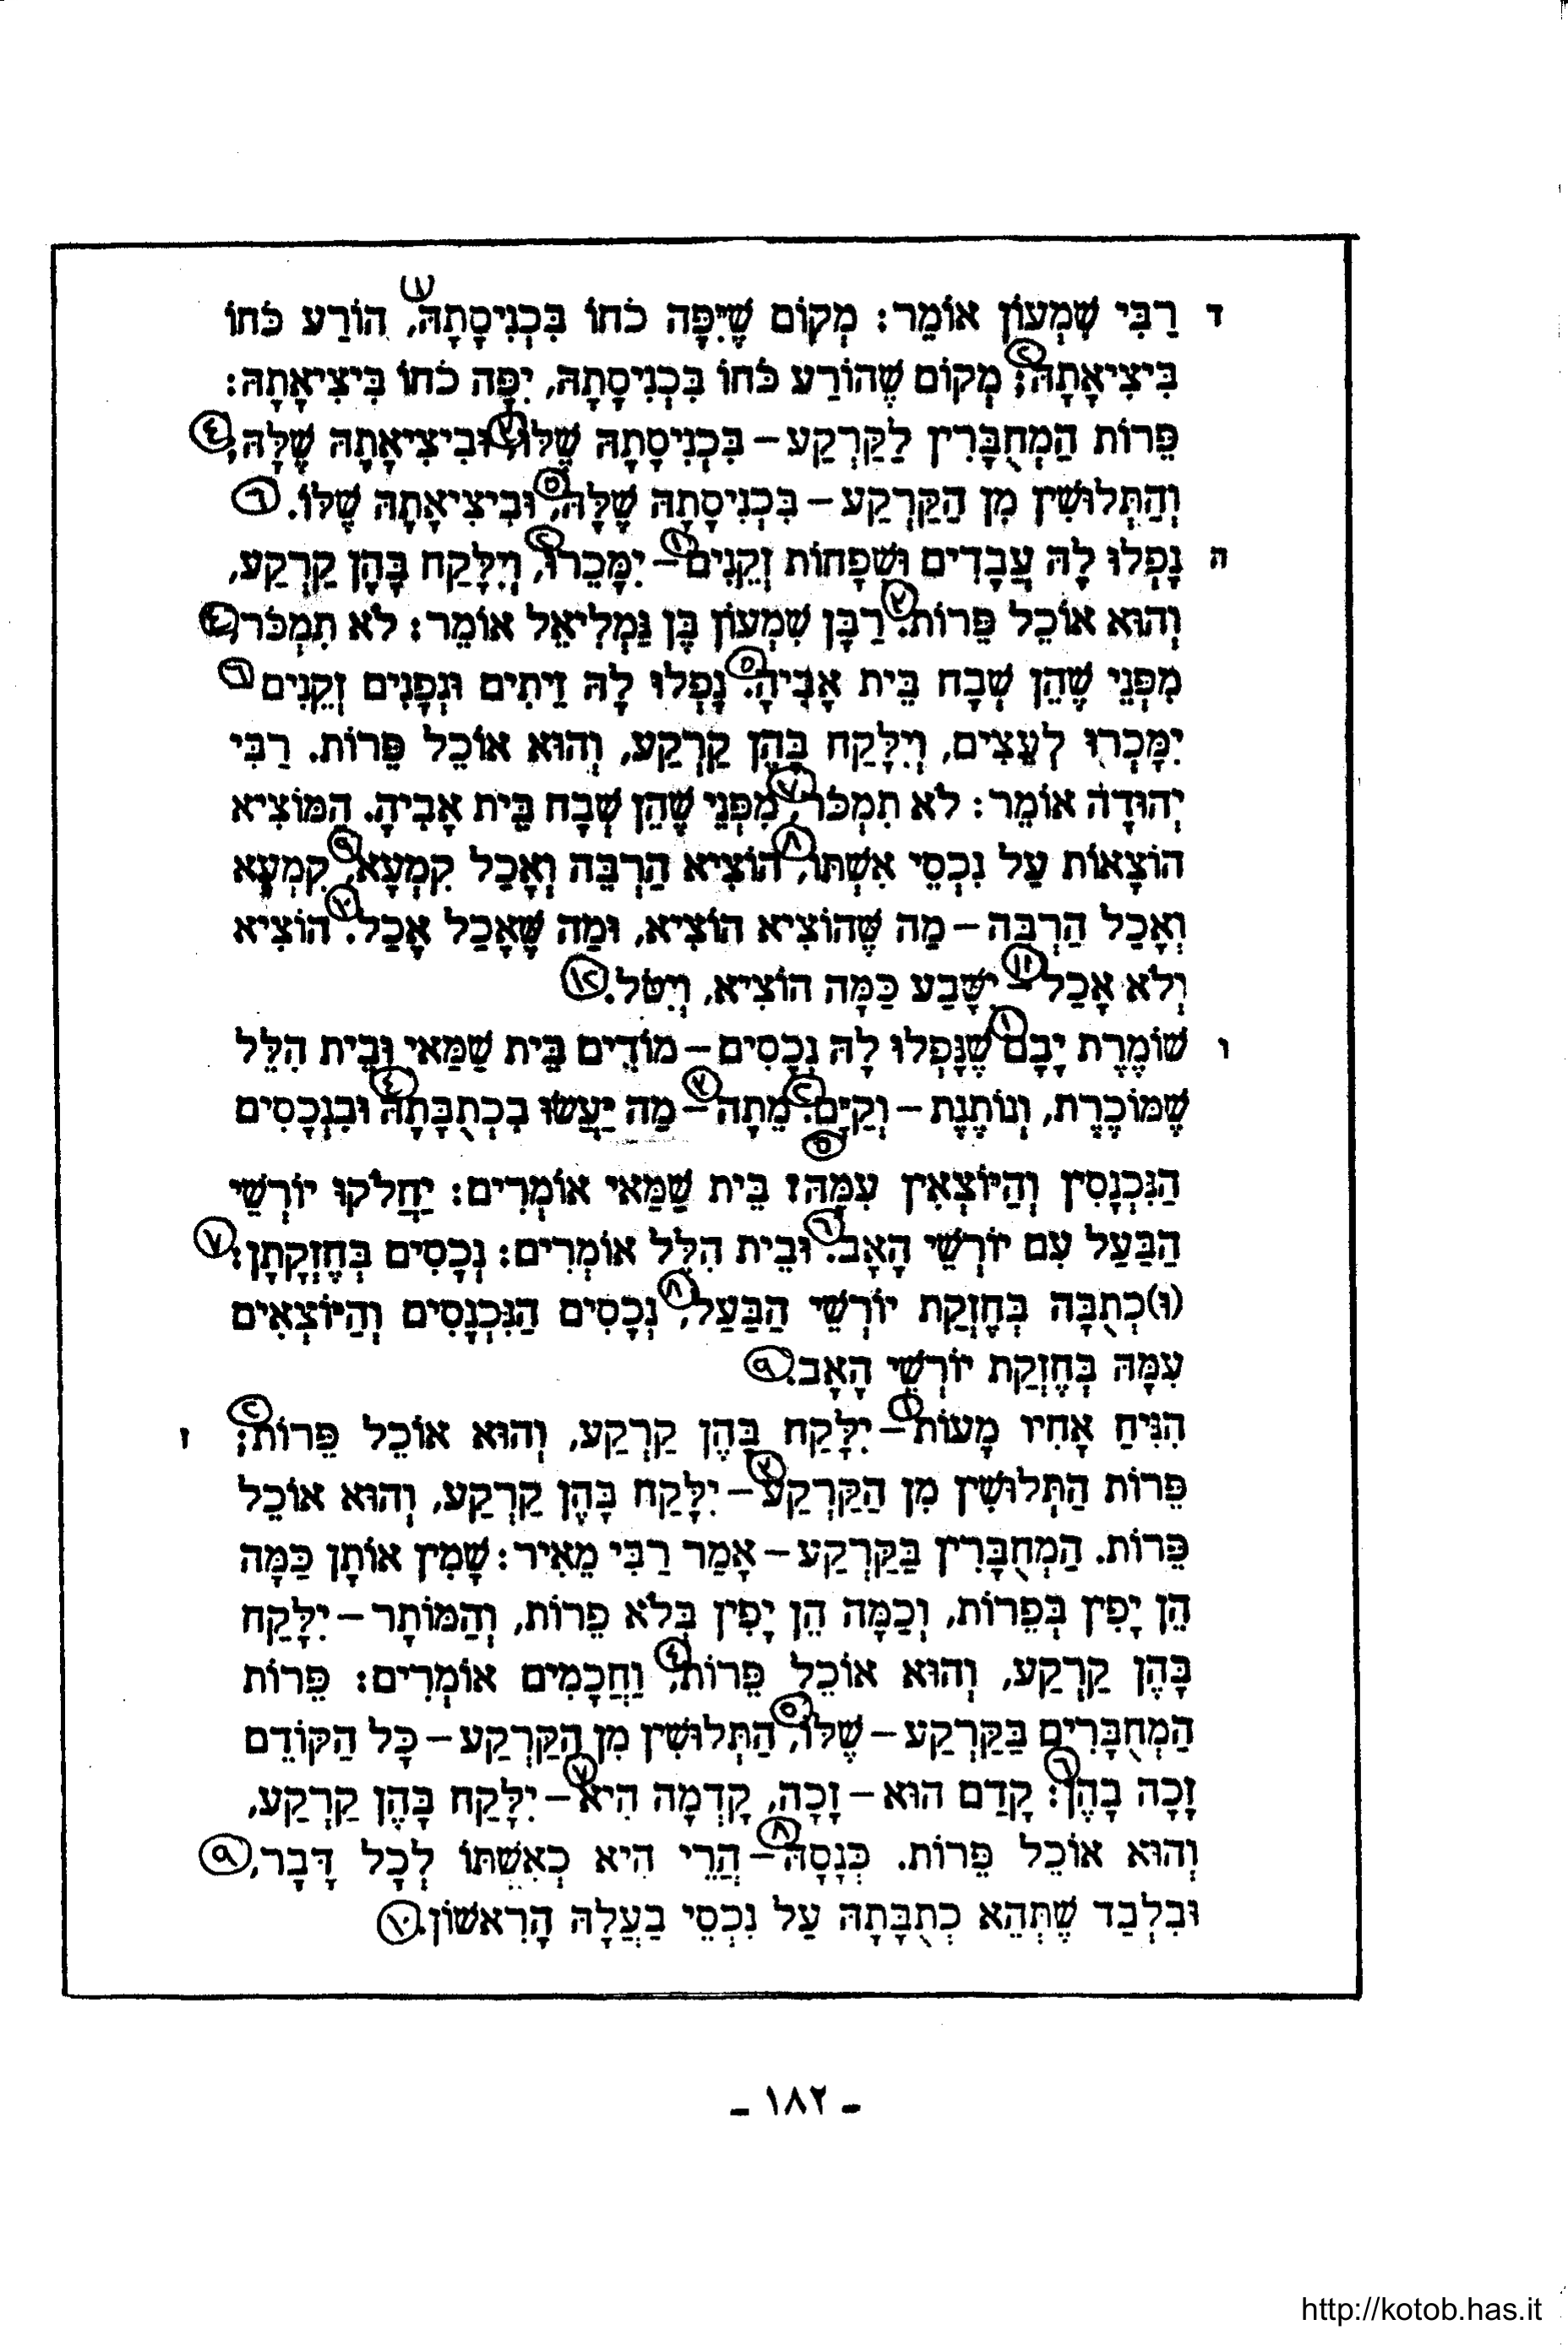 ד רַבִּי שִׁמְעוֹן אוֹמֵר: מְקוֹם שֶׁיִּפָּה כֹחוֹ בִּכְנִיסָתָהּ, (١) הוֹרַע כֹּחוֹ
בִּיצִיאָתָהּ; (٢) מְקוֹם שֶׁהוֹרַע כֹּחוֹ בִּכְנִיסָתָהּ, יִפָּה כֹחוֹ בִּיצִיאָתָהּ:
פֵּרוֹת הַמְחֻבָּרִין לַקַּרְקַע – בִּכְנִיסָתָהּ שֶׁלּוֹ, (٣) וּבִיצִיאָתָהּ שֶׁלָּהּ, (٤)
וְהַתְּלוּשִׁין מִן הַקַּרְקַע – בִּכְנִיסָתָהּ שֶׁלָּהּ, (٥) וּבִיצִיאָתָהּ שֶׁלּוֹ. (٦)
ה נָפְלוּ לָהּ עֲבָדִים וּשְׁפָחוֹת זְקֵנִים (١) – יִמָּכְרוּ, (٢) וְיִלָּקַח בָּהֶן קַרְקַע,
וְהוּא אוֹכֵל פֵּרוֹת. (٣) רַבָּן שִׁמְעוֹן בֶּן גַּמְלִיאֵל אוֹמֵר: לֹא תִמְכֹּר, (٤)
מִפְּנֵי שֶׁהֵן שְׁבָח בֵּית אָבִיהָ. (٥) נָפְלוּ לָהּ זֵיתִים וּגְפָנִים זְקֵנִים (٦)
יִמָּכְרוּ לְעֵצִים, וְיִלָּקַח בָּהֶן קַרְקַע, וְהוּא אוֹכֵל פֵּרוֹת. רַבִּי
יְהוּדָה אוֹמֵר: לֹא תִמְכֹּר, (٧) מִפְּנֵי שֶׁהֵן שְׁבָח בֵּית אָבִיהָ. הַמּוֹצִיא
הוֹצָאוֹת עַל נִכְסֵי אִשְׁתּוֹ, (٨) הוֹצִיא הַרְבֵּה וְאָכַל קִמְעָא, (٩) קִמְעָא
וְאָכַל הַרְבֵּה – מַה שֶּׁהוֹצִיא הוֹצִיא, וּמַה שֶּׁאָכַל אָכַל. (١٠) הוֹצִיא
וְלֹא אָכַל (١١) – יִשָּׁבַע כַּמָּה הוֹצִיא, וְיִטֹּל. (١٢)
ו שׁוֹמֶרֶת יָבָם (١) שֶׁנָּפְלוּ לָהּ נְכָסִים – מוֹדִים בֵּית שַׁמַּאי וּבֵית הִלֵּל
שֶׁמּוֹכֶרֶת, וְנוֹתֶנֶת – וְקַיָּם. (٢) מֵתָה (٣) – מַה יַּעֲשׂוּ בִכְתֻבָּתָהּ (٤) וּבִנְכָסִים
הַנִּכְנָסִין וְהַיּוֹצְאִין עִמָּהּ? (٥) בֵּית שַׁמַּאי אוֹמְרִים: יַחֲלֹקוּ יוֹרְשֵׁי
הַבַּעַל עִם יוֹרְשֵׁי הָאָב. (٦) וּבֵית הִלֵּל אוֹמְרִים: נְכָסִים בְּחֶזְקָתָן: (٧)
(וּ)כְתֻבָּה בְּחֶזְקַת יוֹרְשֵׁי הַבַּעַל, (٨) נְכָסִים הַנִּכְנָסִים וְהַיּוֹצְאִים
עִמָּהּ בְּחֶזְקַת יוֹרְשֵׁי הָאָב. (٩)
ז הִנִּיחַ אָחִיו מָעוֹת (١) – יִלָּקַח בָּהֶן קַרְקַע, וְהוּא אוֹכֵל פֵּרוֹת; (٢)
פֵּרוֹת הַתְּלוּשִׁין מִן הַקַּרְקַע (٣) – יִלָּקַח בָּהֶן קַרְקַע, וְהוּא אוֹכֵל
פֵּרוֹת. הַמְחֻבָּרִין בַּקַּרְקַע – אָמַר רַבִּי מֵאִיר: שָׁמִין אוֹתָן כַּמָּה
הֵן יָפִין בְּפֵרוֹת, וְכַמָּה הֵן יָפִין בְּלֹא פֵרוֹת, וְהַמּוֹתָר – יִלָּקַח
בָּהֶן קַרְקַע, וְהוּא אוֹכֵל פֵּרוֹת, (٤) וַחֲכָמִים אוֹמְרִים: פֵּרוֹת
הַמְחֻבָּרִים בַּקַּרְקַע – שֶׁלּוֹ, (٥) הַתְּלוּשִׁין מִן הַקַּרְקַע – כָּל הַקּוֹדֵם
זָכָה בָהֶן: (٦) קָדַם הוּא – זָכָה, קָדְמָה הִיא (٧) – יִלָּקַח בָּהֶן קַרְקַע,
וְהוּא אוֹכֵל פֵּרוֹת. כְּנָסָהּ (٨) – הֲרֵי הִיא כְאִשְׁתּוֹ לְכָל דָּבָר, (٩)
וּבִלְבַד שֶׁתְּהֵא כְתֻבָּתָהּ עַל נִכְסֵי בַעֲלָהּ הָרִאשׁוֹן. (١٠)
ـ ١٨٢ ـ
http://kotob.has.it